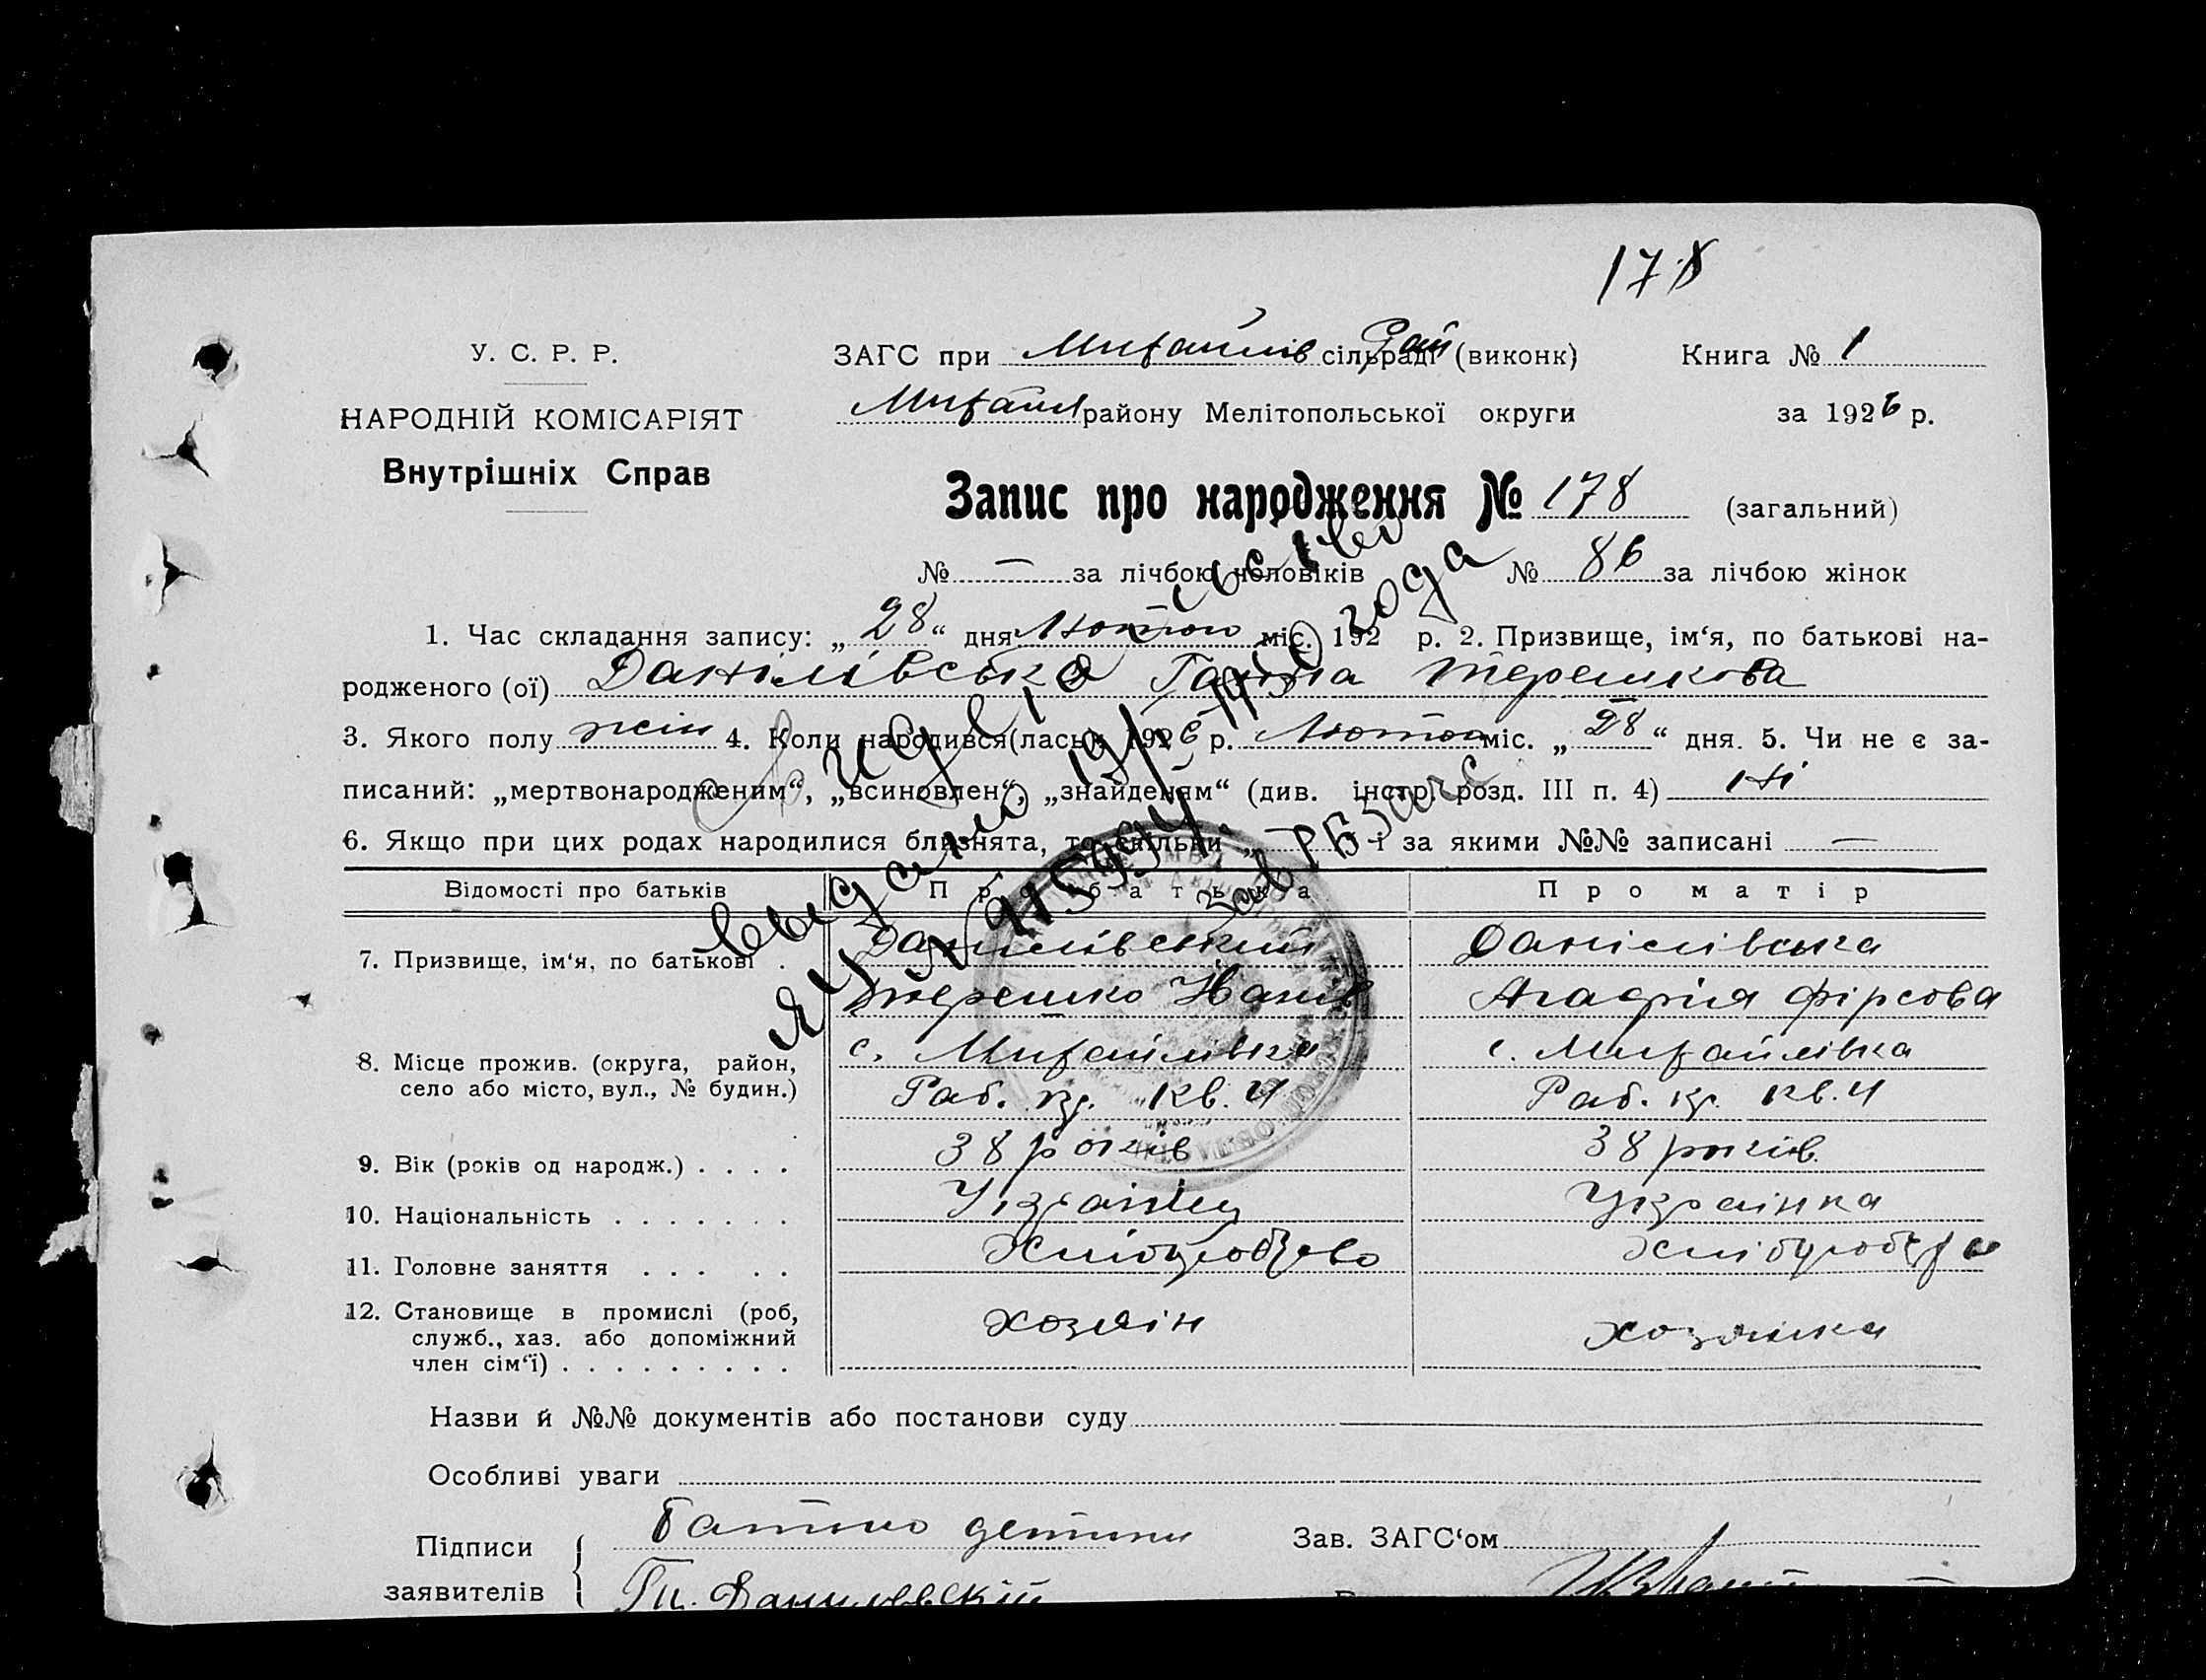 178
У. С. Р. Р.
НАРОДНІЙ КОМІСАРІЯТ
Внутрішніх Справ
ЗАГС при Михайлів сільраді Рай (виконк)
Михайл району Мелітопольської округи
Книга № 1
за 1926 р.
Запис про народження № 178 (загальний)
№ — за лічбою чоловіків № 86 за лічбою жінок
1. Час складання запису: „28“ дня Лютого міс. 192 р. 2. Призвище, ім‘я, по батькові на-
родженого (ої) Данілівська Ганна Терешкова
3. Якого полу жін 4. Коли народився(лась) 1926 р. Лютого міс. „28“ дня. 5. Чи не є за-
писаний: „мертвонародженим“, „всиновлен“, „знайденям“ (див. інстр. розд. III п. 4) Ні
6. Якщо при цих родах народилися близнята, то скільки „ і за якими №№ записані —
Відомості про батьків Про батька Про матір
7. Призвище, ім‘я, по батькові . Данилівський Данілівська
Терешко Агафія Фірсова
8. Місце прожив. (округа, район, с. Михайлівка с. Михайлівка
село або місто, вул., № будин.) Раб. кр. кв. 4 Раб. кр. кв. 4
9. Вік (років од народж.) . . . . 38 років 38 років
10. Національність . . . . . . . Українец Українка
11. Головне заняття . . . . .
12. Становище в промислі (роб,
служб., хаз. або допоміжний хозяін хозяйка
член сім‘ї) . . . . . . . . .
Назви й №№ документів або постанови суду
Особливі уваги
Підписи
заявителів
Батько детини
Даниловскій
Зав. ЗАГС‘ом
выдано
1950 года
Зав РБЗагс